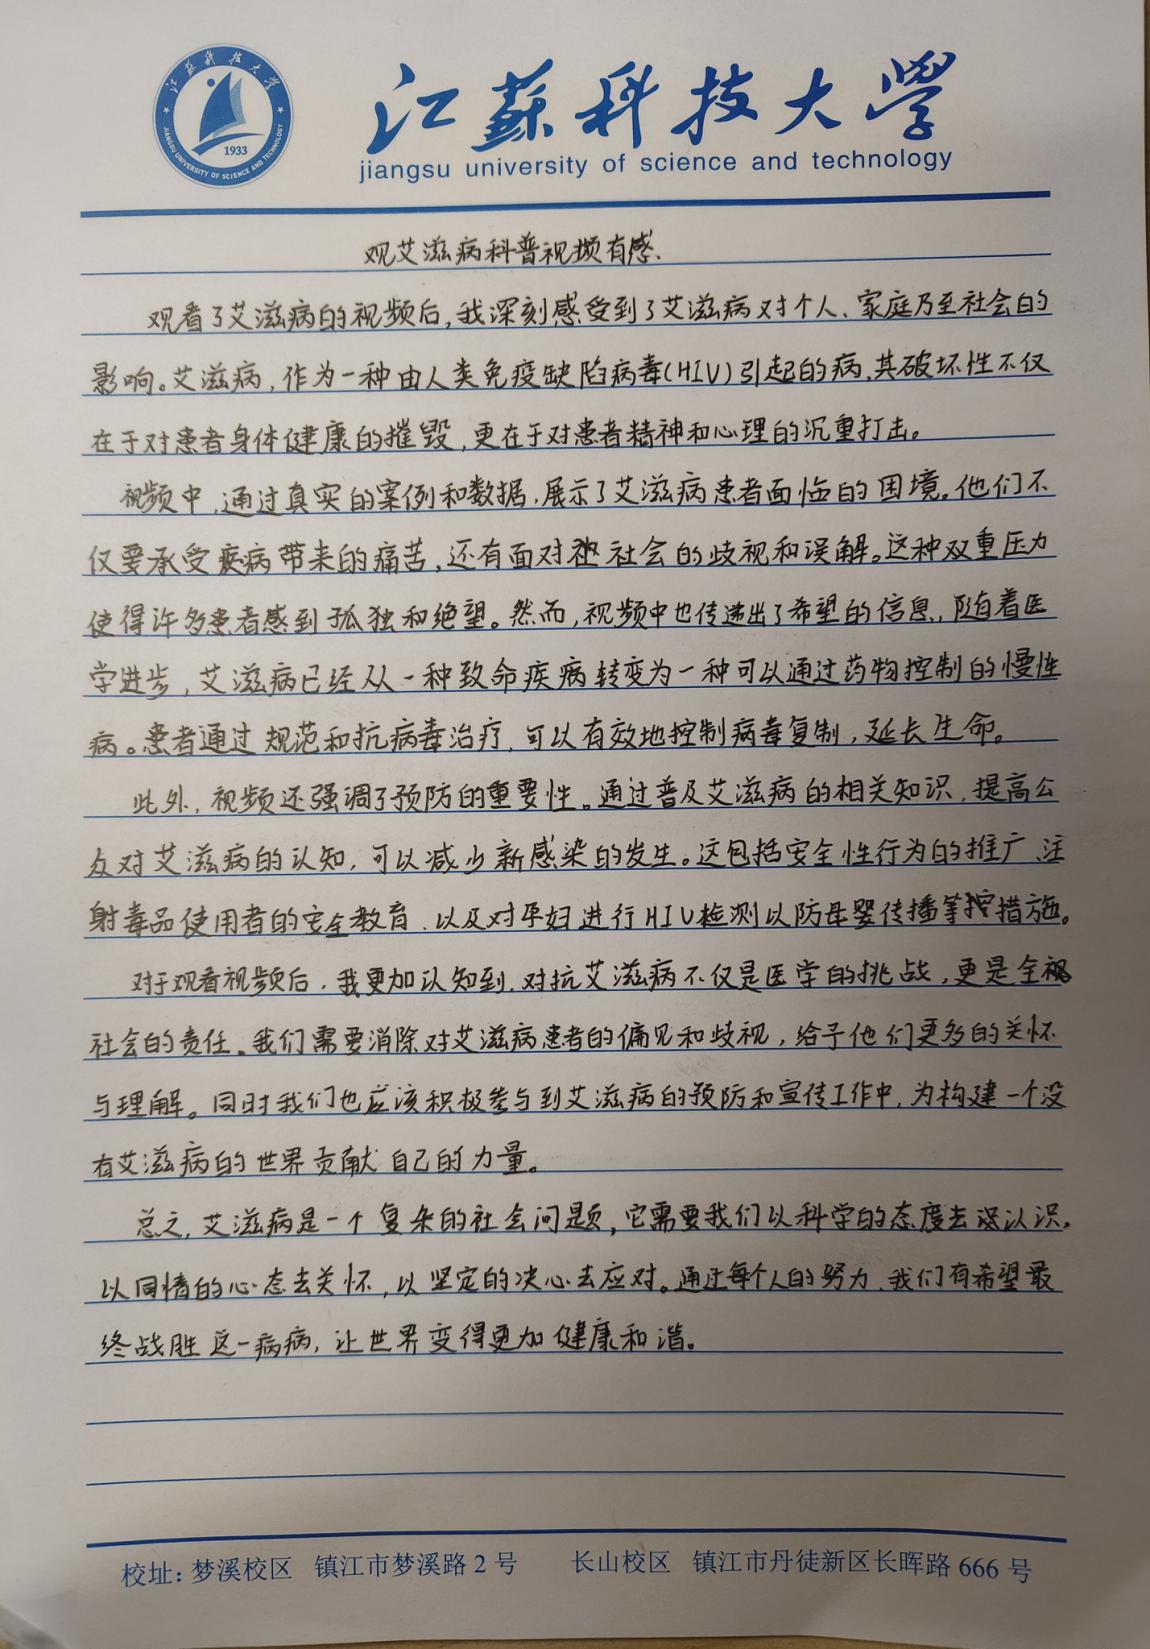 江苏科技大学
JIANGSU UNIVERSITY OF SCIENCE AND TECHNOLOGY
1933
江蘇科技大學
jiangsu university of science and technology
观艾滋病科普视频有感
观看了艾滋病的视频后,我深刻感受到了艾滋病对个人、家庭乃至社会的
影响。艾滋病,作为一种由人类免疫缺陷病毒(HIV)引起的病,其破坏性不仅
在于对患者身体健康的摧毁,更在于对患者精神和心理的沉重打击。
视频中,通过真实的案例和数据,展示了艾滋病患者面临的困境。他们不
仅要承受疾病带来的痛苦,还有面对社会的歧视和误解。这种双重压力
使得许多患者感到孤独和绝望。然而,视频中也传递出了希望的信息,随着医
学进步,艾滋病已经从一种致命疾病转变为一种可以通过药物控制的慢性
病。患者通过规范和抗病毒治疗,可以有效地控制病毒复制,延长生命。
此外,视频还强调了预防的重要性。通过普及艾滋病的相关知识,提高公
众对艾滋病的认知,可以减少新感染的发生。这包括安全性行为的推广、注
射毒品使用者的安全教育、以及对孕妇进行HIV检测以防母婴传播等措施。
对于观看视频后,我更加认知到,对抗艾滋病不仅是医学的挑战,更是全
社会的责任。我们需要消除对艾滋病患者的偏见和歧视,给予他们更多的关怀
与理解。同时我们也应该积极参与到艾滋病的预防和宣传工作中,为构建一个没
有艾滋病的世界贡献自己的力量。
总之,艾滋病是一个复杂的社会问题,它需要我们以科学的态度去认识,
以同情的心态去关怀,以坚定的决心去应对。通过每个人的努力,我们有希望最
终战胜这一病病,让世界变得更加健康和谐。
校址:梦溪校区 镇江市梦溪路2号 长山校区 镇江市丹徒新区长晖路666号